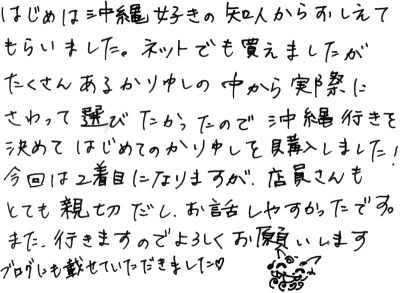 はじめは沖縄好きの知人からおしえて
もらいました。ネットでも買えましたが
たくさんあるかりゆしの中から実際に
さわって選びたかったので沖縄行きを
決めてはじめてのかりゆしを購入しました!
今回は2着目になりますが、店員さんも
とても親切だし、お話しやすかったです。
また、行きますのでよろしくお願いします
ブログにも載せていただきました♡